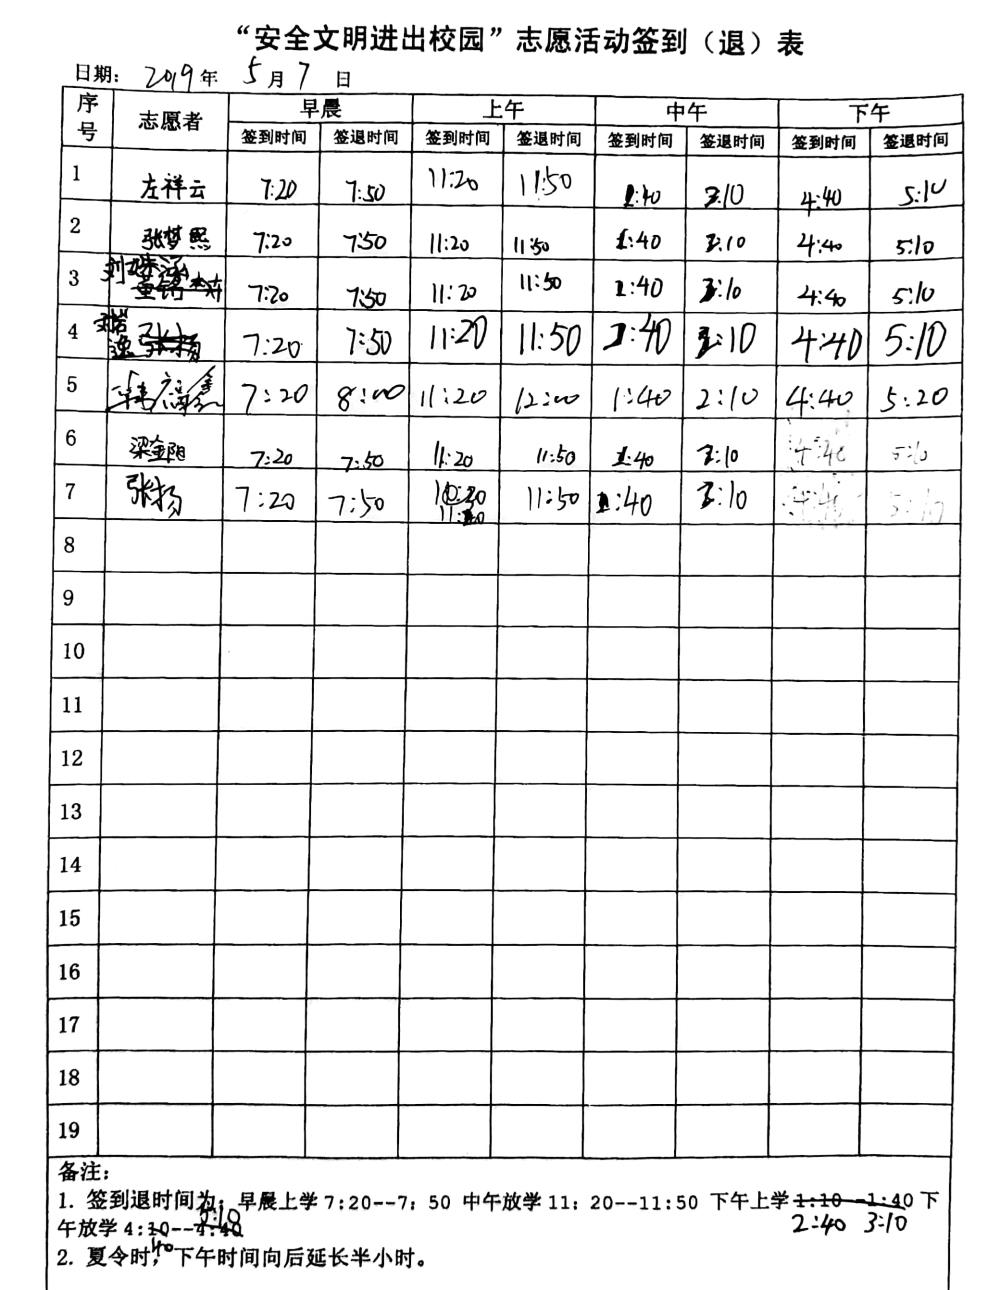 “安全文明进出校园”志愿活动签到（退）表
日期： 2019 年 5 月 7 日
序号 志愿者 早晨 上午 中午 下午
签到时间 签退时间 签到时间 签退时间 签到时间 签退时间 签到时间 签退时间
1 左祥云 7:20 7:50 11:20 11:50 :40 :10 4:40 5:10
2 张梦熙 7:20 7:50 11:20 11:50 :40 :10 4:40 5:10
3 7:20 7:50 11:20 11:50 :40 :10 4:40 5:10
4 张扬 7:20 7:50 11:20 11:50 :40 :10 4:40 5:10
5 7:20 8:00 11:20 12:00 1:40 2:10 4:40 5:20
6 梁金阳 7:20 7:50 11:20 11:50 :40 :10 4:40 5:10
7 张扬 7:20 7:50 11:50 :40 :10 4:40 5:10
8
9
10
11
12
13
14
15
16
17
18
19
备注：
1. 签到退时间为：早晨上学 7:20--7：50 中午放学 11：20--11:50 下午上学 1:10--1:40 下
午放学 4:10--4:40 5:10 2:40 3:10
40
2. 夏令时，下午时间向后延长半小时。